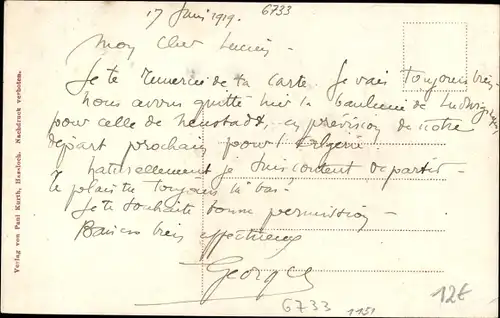 17 Juni 1919.
6733
Mon cher Lucien -
Je te remercie de ta carte. Je vais toujours bien
nous avons quitté hier la banlieue de Ludwig
pour celle de Neustadt, en prévision de notre
départ prochain pour l'Algérie.
Naturellement je suis content de partir -
Te plais tu toujours là bas -
Je te souhaite bonne permission -
Baisers bien affectueux
Georges
6733
1151
12€
Verlag von Paul Kurth, Hassloch. Nachdruck verboten.